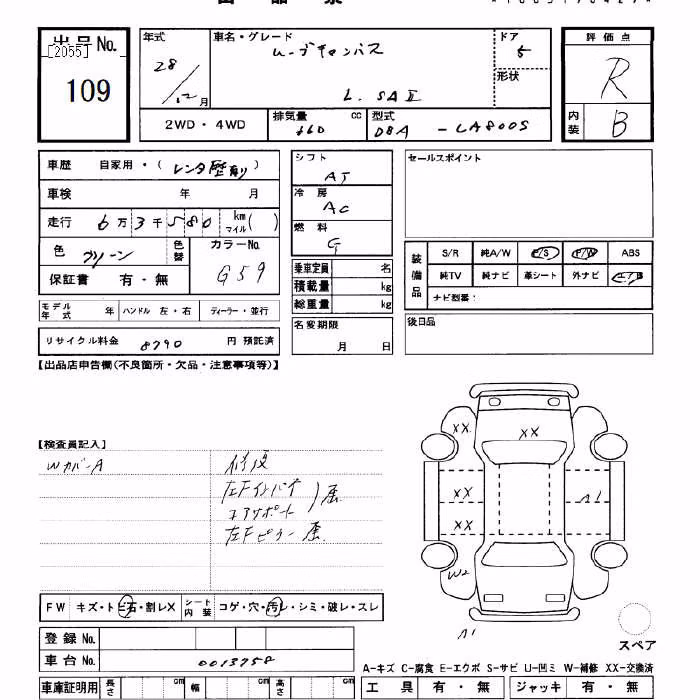 出品No.
[2055]
109
年式
28/12月
車名・グレード
ムーブキャンバス
L.SAⅡ
ドア
5
形状
評価点
R
内装
B
2WD・4WD
排気量 660 cc
型式 DBA - LA800S
車歴 自家用・(レンタ歴有り)
車検 年 月
走行 6万3千580 km マイル( )
色 グリーン 色替
カラーNo. G59
保証書 有・無
モデル年式 年 ハンドル 左・右 ディーラー・並行
リサイクル料金 8790 円 預託済
シフト
AT
冷房
AC
燃料
G
乗車定員 名
積載量 kg
総重量 kg
名変期限
月 日
セールスポイント
装備品
S/R 純A/W P/S P/W ABS
純TV 純ナビ 革シート 外ナビ ETC
ナビ型番:
後日品
【出品店申告欄(不良箇所・欠品・注意事項等)】
【検査員記入】
Wカバ-A
修復
左Fインパネ
コアサポート
左Fピラー
XX
XX
XX
XX
A1
W2
A1
FW キズ・トビ石・割レX
シート内装 コゲ・穴・汚レ・シミ・破レ・スレ
登録No.
車台No. 0013758
スペア
A-キズ C-腐食 E-エクボ S-サビ U-凹ミ W-補修 XX-交換済
車庫証明用 長さ cm 幅 cm 高さ cm
工具 有・無 ジャッキ 有・無